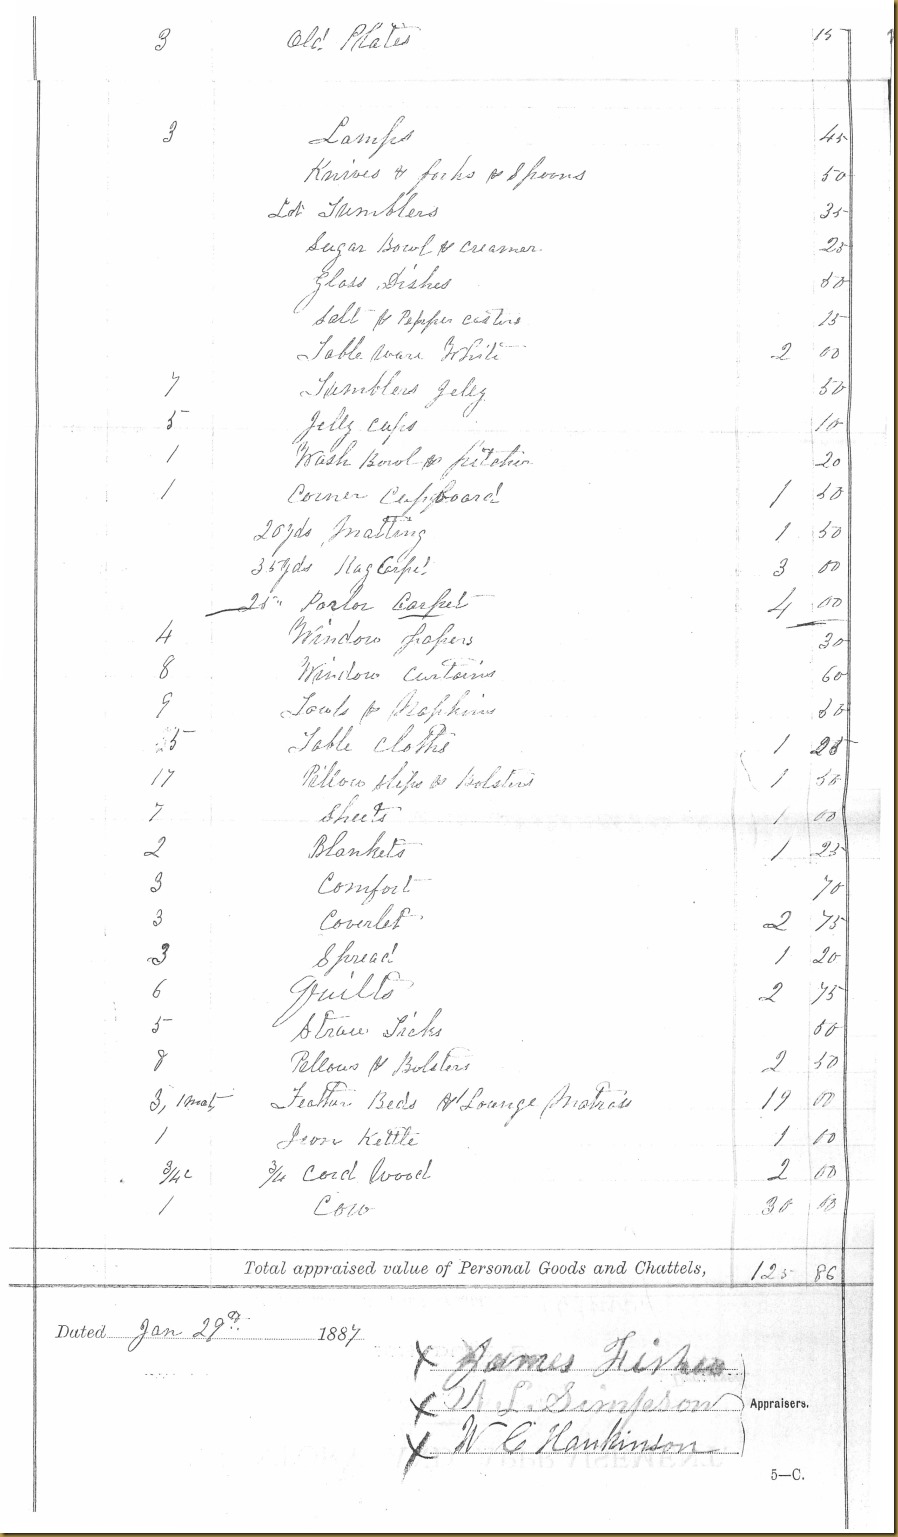 3 Old Plates 15
3 Lamps 45
Knives & forks & Spoons 50
Lot Tumblers 35
Sugar Bowl & Creamer 25
Glass Dishes 50
Salt & Pepper casters 15
Table ware White 2 00
7 Tumblers Jelly 50
5 Jelly cups 10
1 Wash Bowl & pitcher 20
1 Corner Cupboard 1 50
20 yds Matting 1 50
35 yds Rag Carpet 3 00
25 " Parlor Carpet 4 00
4 Window papers 30
8 Window Curtains 60
9 Towls & Napkins 50
5 Table Cloths 1 25
17 Pillow slips & Bolsters 1 50
7 Sheets 1 00
2 Blankets 1 25
3 Comfort 70
3 Coverlet 2 75
3 Spread 1 20
6 Quilts 2 75
5 Straw Ticks 50
8 Pillows & Bolsters 2 50
3, 1 mat, Feather Beds & Lounge Matrass 19 00
1 Iron Kettle 1 00
3/4 c 3/4 Cord Wood 2 00
1 Cow 30 00
Total appraised value of Personal Goods and Chattels, 125 86
Dated Jan 29th 1887
X James Fisher
X L. Simpson Appraisers.
X W C Hankinson
5—C.